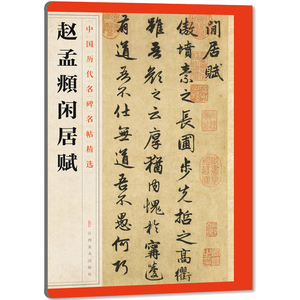 赵孟頫闲居赋
中国历代名碑名帖精选
江西美术出版社
閒居賦
傲墳素之長圃步先哲之高衢
雖吾顏之云厚猶内愧於甯蘧
有道吾不仕無道吾不愚何巧